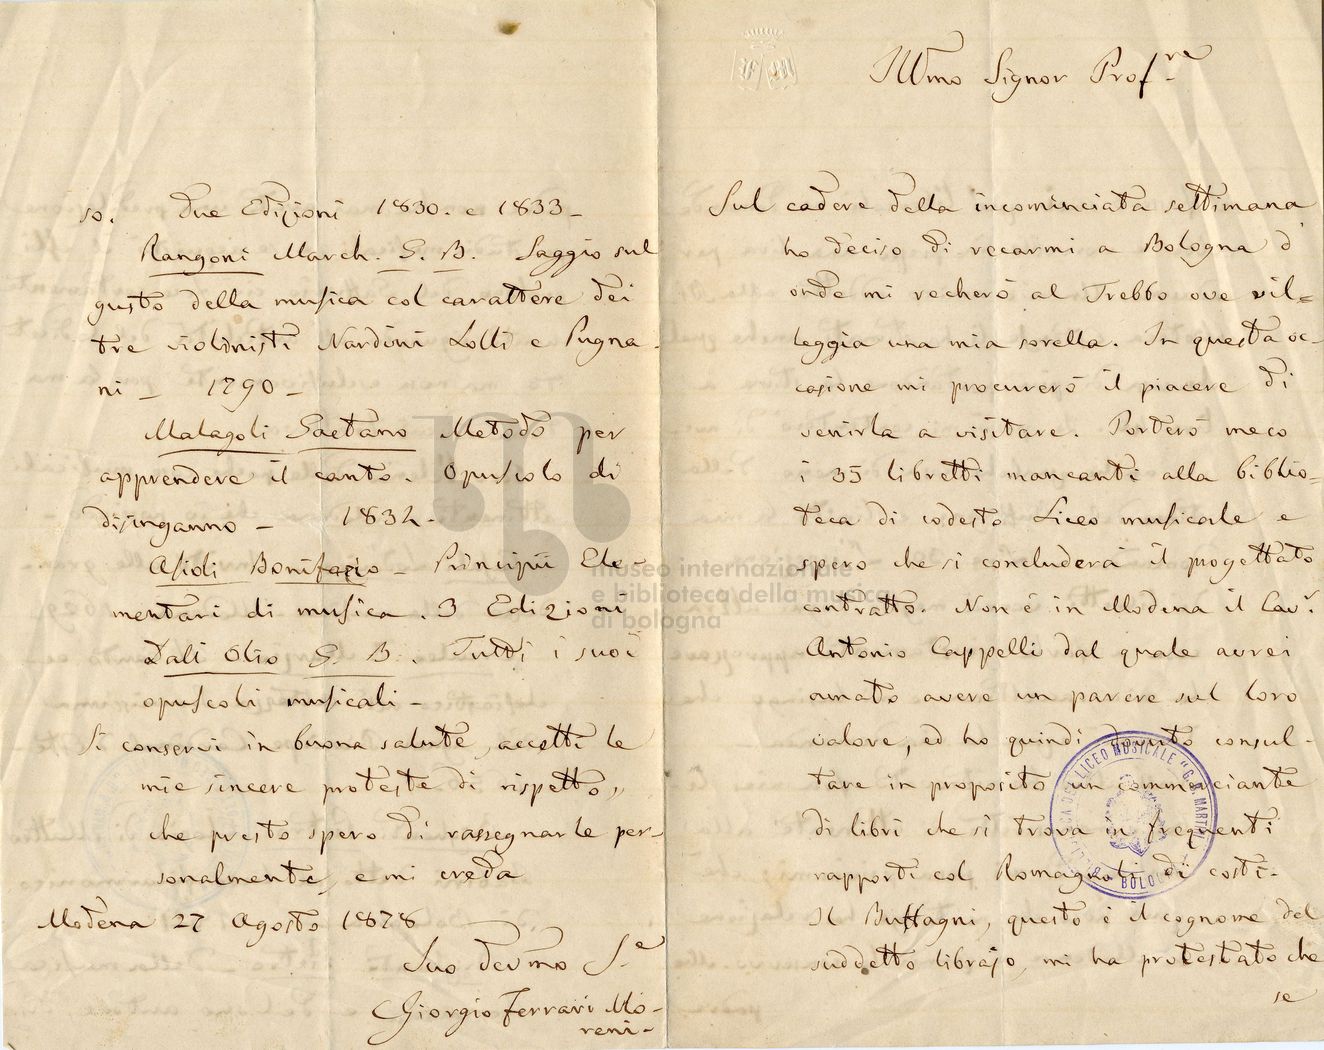 so. Due Edizioni 1830. e 1833_
Rangoni March. G. B. Saggio sul
gusto della musica col carattere dei
tre violinisti Nardini Lolli e Pugna-
ni _ 1790 _
Malagoli Gaetano Metodo per
apprendere il canto. Opuscolo di
disinganno _ 1834_
Asioli Bonifazio _ Principii Ele-
mentari di musica. 3 Edizioni
Dall Olio G. B. . Tutti i suoi
opuscoli musicali _
Si conservi in buona salute, accetti le
mie sincere proteste di rispetto,
che presto spero di rassegnarle per-
sonalmente, e mi creda
Modena 27 Agosto 1878
Suo Devmo S.e
Giorgio Ferrari Mo-
reni_
Illmo Signor Prof.re
Sul cadere della incominciata settimana
ho deciso di recarmi a Bologna d'
onde mi recherò al Trebbo ove vil=
leggia una mia sorella. In questa oc-
casione mi procurerò il piacere di
venirla a visitare. Porterò meco
i 35 libretti mancanti alla biblio-
teca di codesto Liceo musicale e
spero che si concluderà il progettato
contratto. Non è in Modena il Cav.r
Antonio Cappelli dal quale avrei
amato avere un parere sul loro
valore, ed ho quindi dovuto consul-
tare in proposito un commerciante
di libri che si trova in frequenti
rapporti col Romagnoli di costì.
Il Buffagni, questo è il cognome del
suddetto librajo, mi ha protestato che
se
museo internazionale
e biblioteca della musica
di bologna
BIBLIOTECA DEL LICEO MUSICALE "G. B. MARTINI"
BOLOGNA